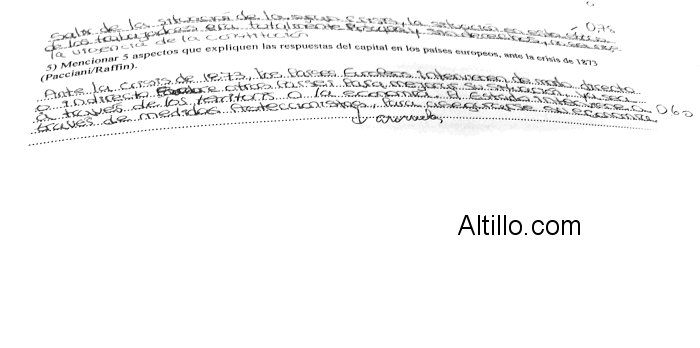 Salir de la situación de la segun crisis, la situación en esta clase 0,75
de los trabajadores era totalmente y sin derechos, ya sea x
la vigencia de la constitución
5) Mencionar 5 aspectos que expliquen las respuestas del capital en los países europeos, ante la crisis de 1873
(Pacciani/Raffin).
Ante la crisis de 1873, los Países Europeos Intervienen de modo directo
o indirecto otros países para mejorar su situación, ya sea
a través de los territorios o la economía. El Estado interviene a 0,60
través de medidas Proteccionistas, para asegurarse su economía.
Altillo.com